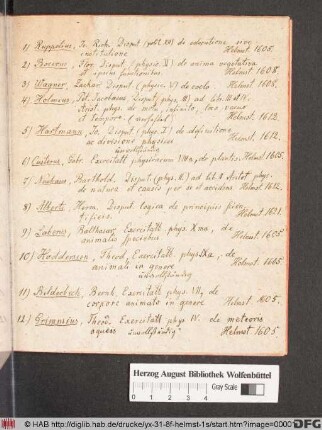 1) Ruppelius, Fr. Rich. Disput. (polit. XII) de educatione sive
institutione Helmst. 1605.
2) Bocerus, Flor. Disput. (physic. V) de anima vegetativa
et ipsius functionibus Helmst. 1608.
3) Wagner, Zachar. Disput. (physic. V) de coelo Helmst. 1608.
4) Holmius, Jacobaeus, Disput. phys. III) ad lib. III et IV.
Aristot. phys. de motu, infinito, loco, vacuo
et tempore. Helmst. 1612.
5) Hartmann, Disput. (phys. I) de definitione
et divisione physices Helmst. 1612.
unvollständig
6) Exercitatt. physicarum de plantis, Helmst. 1605.
7) Neuhaus, Barthold. Disput. (phys. II) ad lib. II Aristot. phys.
de natura et causis per se et accidens Helmst. 1612.
8) Alberti, Herm. Disput. logica de principiis scien-
tificis. Helmst. 1621.
9) Balthasar, Exercitatt. phys. Xma, de
animalis speciebus. Helmst. 1605
10) Theod. Exercitatt. phys. IXa, de
animali in genere Helmst. 1605
unvollständig
11) Bilderbeck, Bernh. Exercitatt. phys. VII, de
corpore animato in genere Helmst. 1605.
12) Theod. Exercitatt. phys. IV. de meteoris
aqueis unvollständig Helmst. 1605
Herzog August Bibliothek Wolfenbüttel
Gray Scale
© HAB http://diglib.hab.de/drucke/yx-31-8f-helmst-1s/start.htm?image=00001
DFG